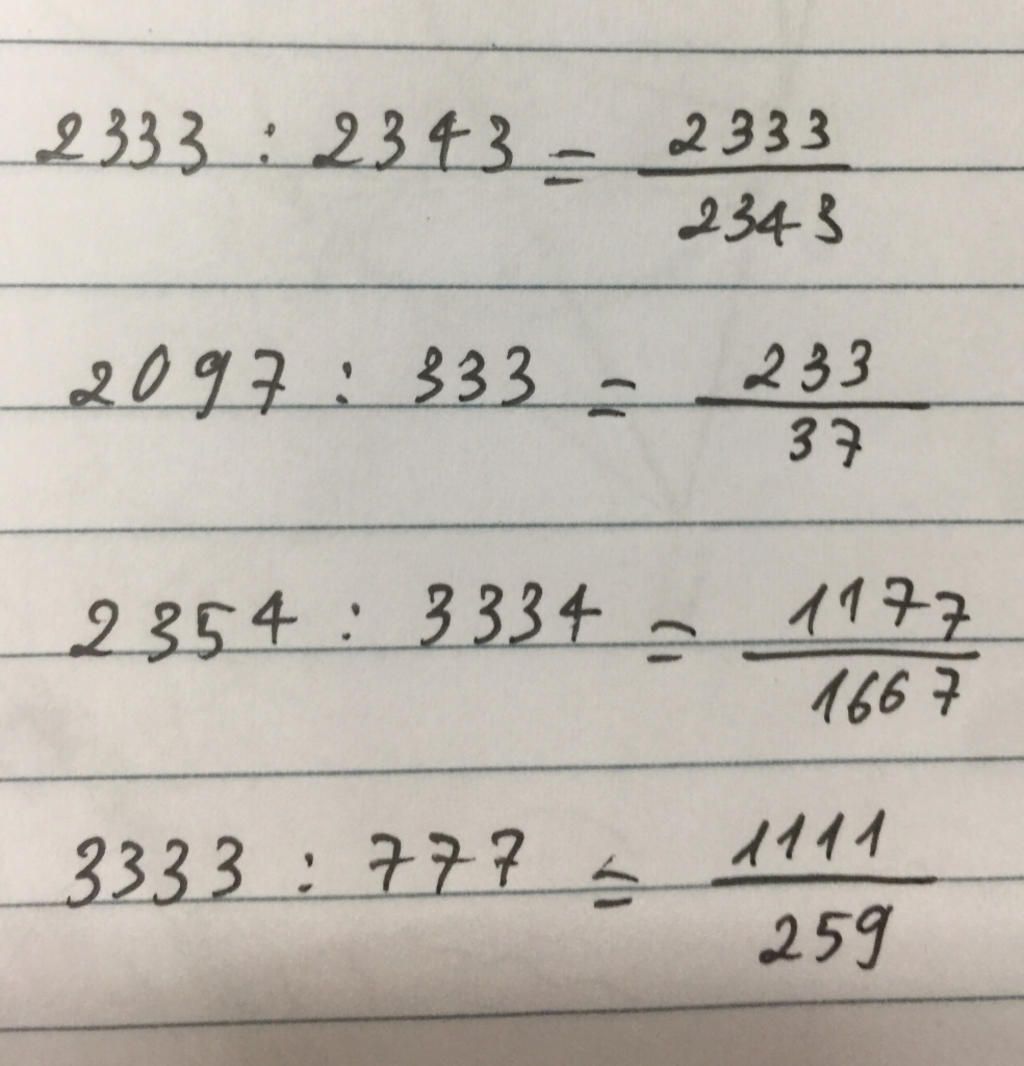 2333 : 2343 = 2333/2343
2097 : 333 = 233/37
2354 : 3334 = 1177/1667
3333 : 777 = 1111/259